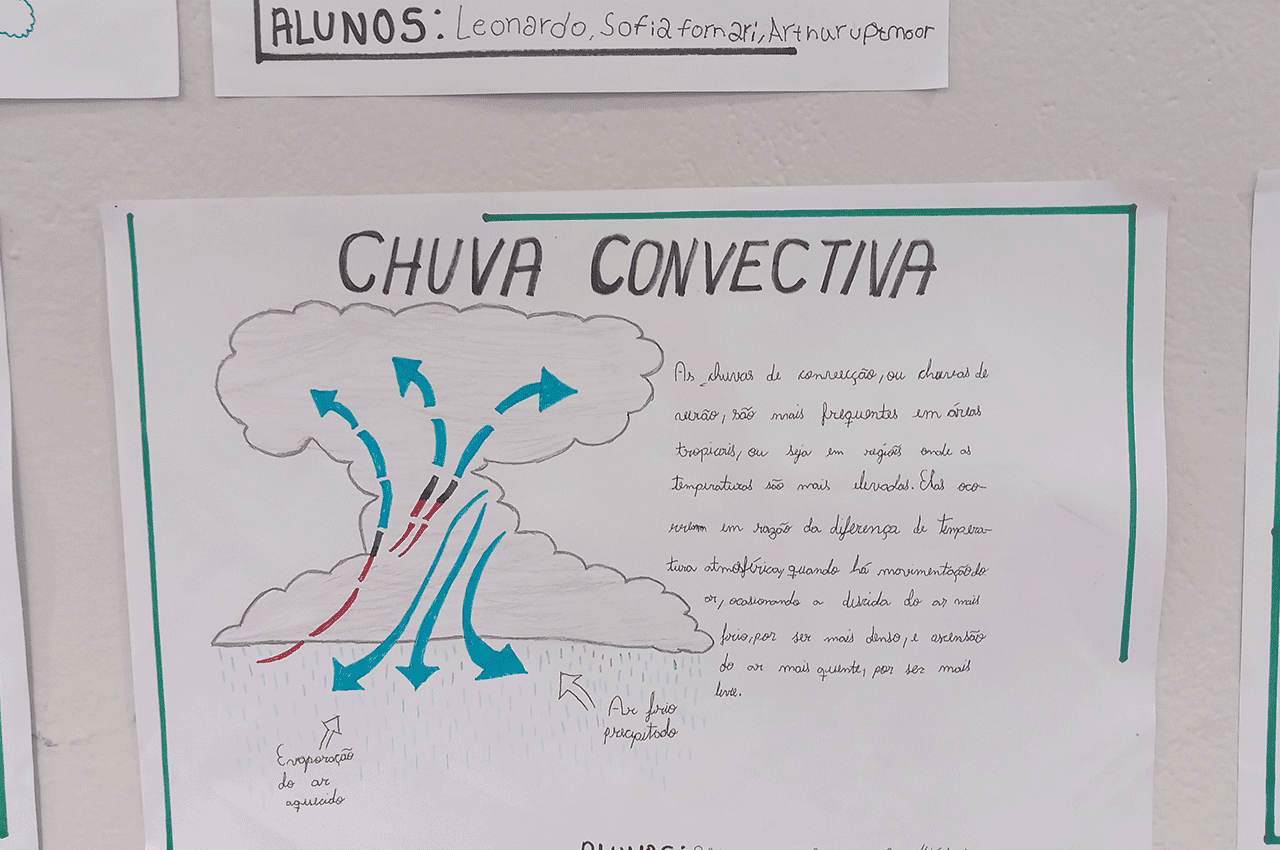 ALUNOS: Leonardo, Sofia fornari, Arthur uptmoor
CHUVA CONVECTIVA
As chuvas de convecção, ou chuvas de
verão, são mais frequentes em áreas
tropicais, ou seja em regiões onde as
temperaturas são mais elevadas. Elas oco-
rrem em razão da diferença de tempera-
tura atmosférica, quando há movimentação do
ar, ocasionando a descida do ar mais
frio, por ser mais denso, e ascensão
do ar mais quente, por ser mais
leve.
Ar frio
precipitado
Evaporação
do ar
aquecido
ALUNAS: